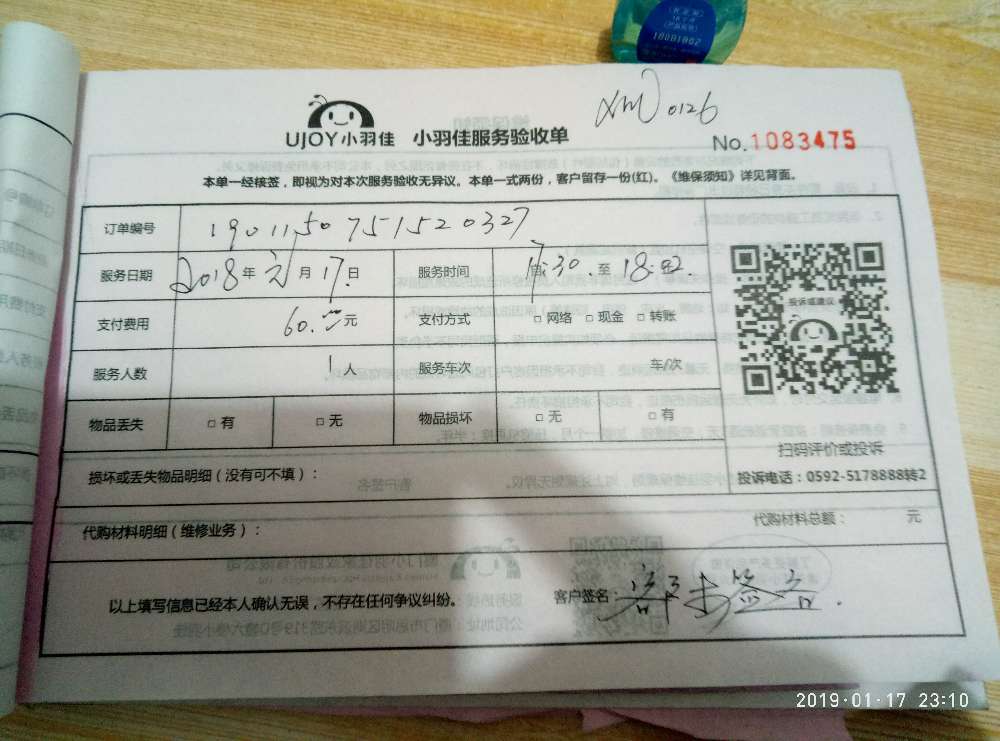 180B1B02
XM 0126
UJOY小羽佳 小羽佳服务验收单
No.1083475
本单一经核签，即视为对本次服务验收无异议。本单一式两份，客户留存一份(红)。《维保须知》详见背面。
订单编号 1901150751520327
服务日期 2018年 元 月 17日 服务时间 17:30 至 18:02
支付费用 60. 元 支付方式 □ 网络 □ 现金 □ 转账
投诉或建议
服务人数 1人 服务车次 车/次
物品丢失 □ 有 □ 无 物品损坏 □ 无 □ 有
扫码评价或投诉
损坏或丢失物品明细（没有可不填）：
投诉电话：0592-5178888转2
代购材料明细（维修业务）： 代购材料总额： 元
以上填写信息已经本人确认无误，不存在任何争议纠纷。 客户签名：
2019-01-17 23:10